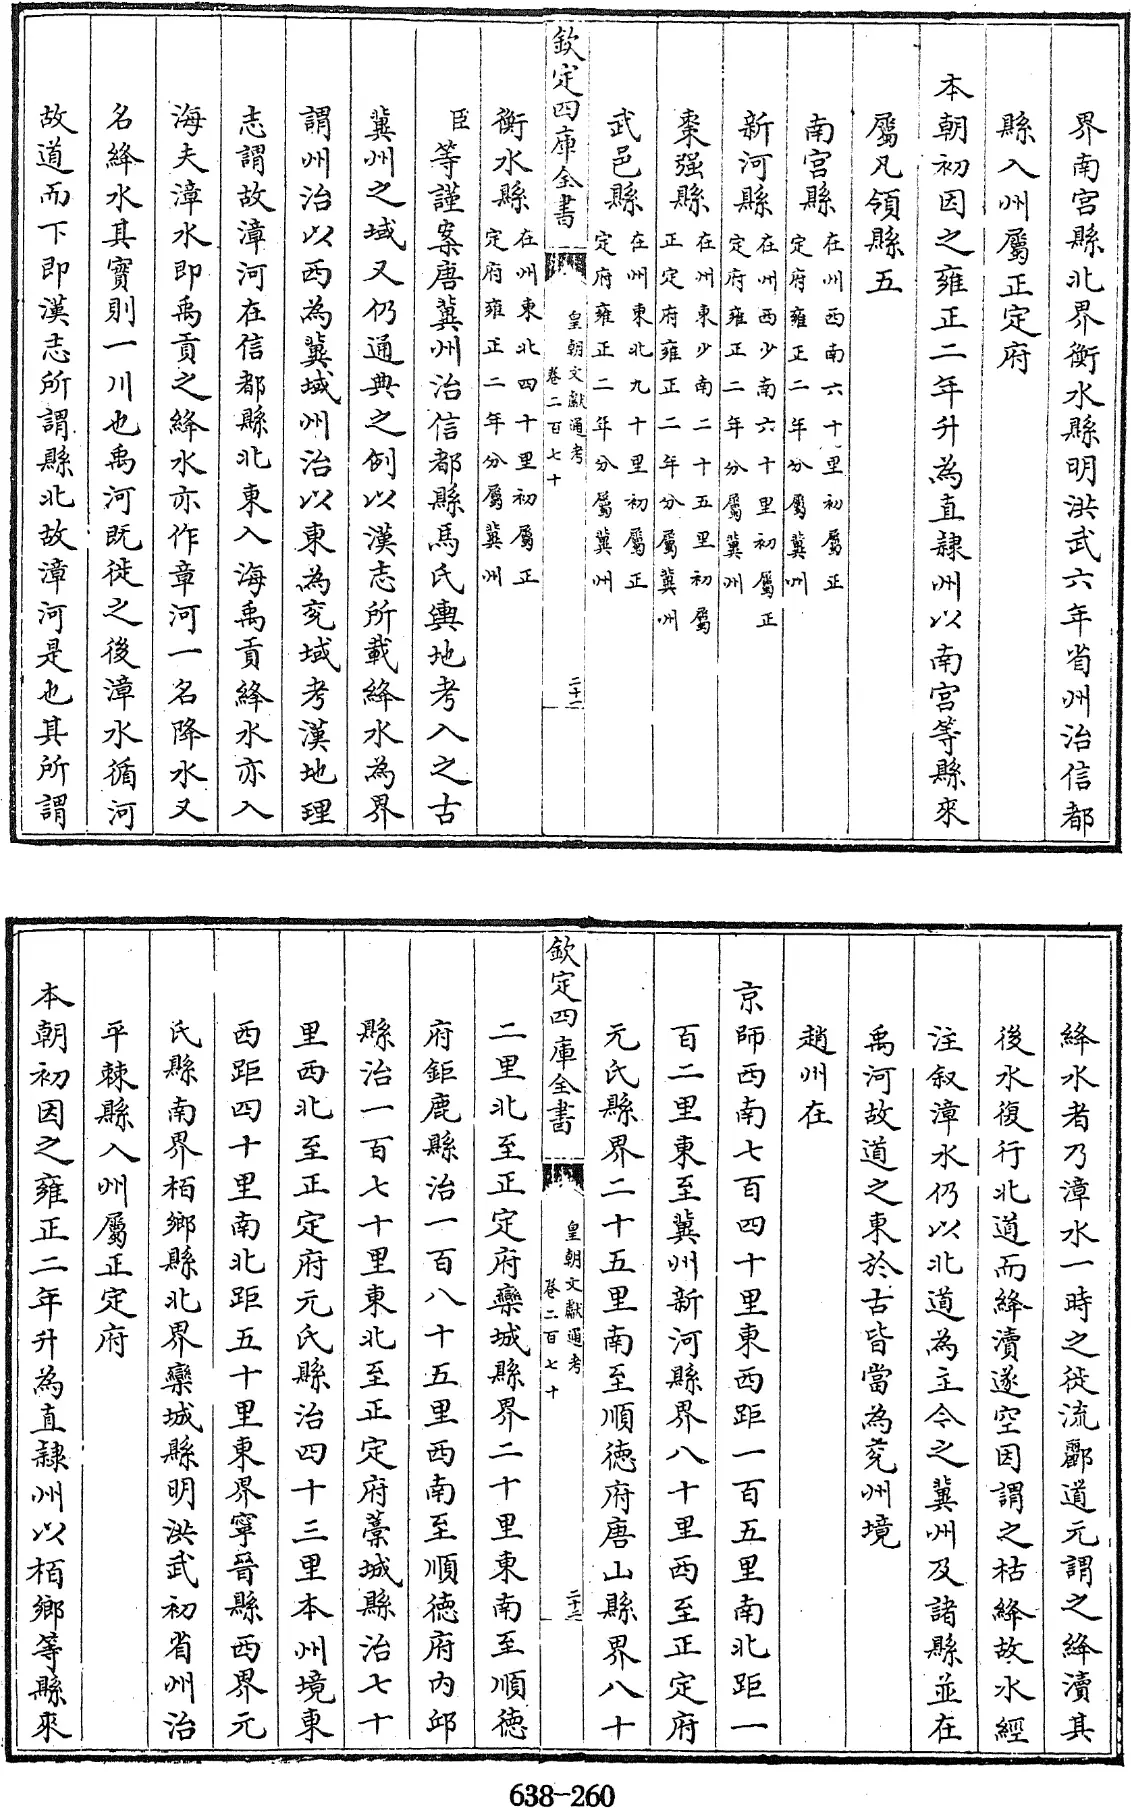 界南宫縣北界衡水縣明洪武六年省州治信都
縣入州屬正定府
本朝初因之雍正二年升為直隷州以南宫等縣來
屬凡領縣五
南宫縣在州西南六十里初屬正
定府雍正二年分屬冀州
新河縣在州西少南六十里初屬正
定府雍正二年分屬冀州
棗强縣在州東少南二十五里初屬
正定府雍正二年分屬冀州
武邑縣在州東北九十里初屬正
定府雍正二年分屬冀州
欽定四庫全書
皇朝文獻通考
卷二百七十
二十二
衡水縣在州東北四十里初屬正
定府雍正二年分屬冀州
臣等謹案唐冀州治信都縣馬氏輿地考入之古
冀州之域又仍通典之例以漢志所載絳水為界
謂州治以西為冀域州治以東為兖域考漢地理
志謂故漳河在信都縣北東入海禹貢絳水亦入
海夫漳水即禹貢之絳水亦作章河一名降水又
名絳水其實則一川也禹河既徙之後漳水循河
故道而下即漢志所謂縣北故漳河是也其所謂
絳水者乃漳水一時之徙流酈道元謂之絳瀆其
後水復行北道而絳瀆遂空因謂之枯絳故水經
注叙漳水仍以北道為主今之冀州及諸縣並在
禹河故道之東於古皆當為兖州境
趙州在
京師西南七百四十里東西距一百五里南北距一
百二里東至冀州新河縣界八十里西至正定府
元氏縣界二十五里南至順德府唐山縣界八十
欽定四庫全書
皇朝文獻通考
卷二百七十
二十三
二里北至正定府欒城縣界二十里東南至順德
府鉅鹿縣治一百八十五里西南至順德府内邱
縣治一百七十里東北至正定府藁城縣治七十
里西北至正定府元氏縣治四十三里本州境東
西距四十里南北距五十里東界寧晉縣西界元
氏縣南界栢鄉縣北界欒城縣明洪武初省州治
平棘縣入州屬正定府
本朝初因之雍正二年升為直隷州以栢鄉等縣來
638-260